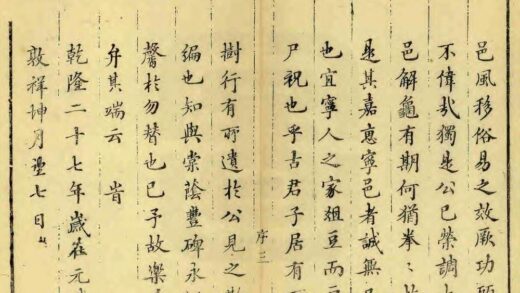 邑風移俗易之效厥功
不偉哉獨是公已榮調
邑解龜有期何猶拳〻
是其嘉惠寧邑者誠無
也宜寧人之家俎豆而
尸祝也乎古君子居有
序三
樹行有所遺於公見之
編也知與棠蔭豐碑永
馨於勿替也已予故樂
弁其端云 旹
乾隆二十七年歲在元
敦祥坤月望七日